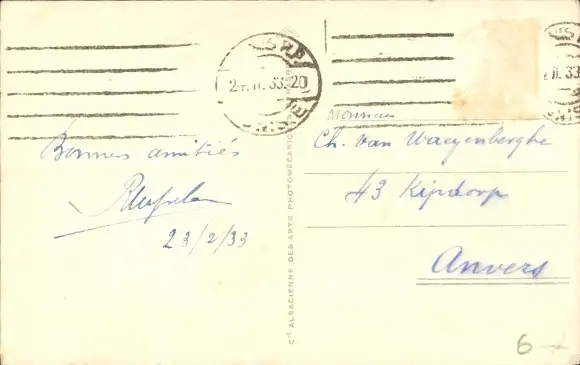 2 . II. 33. 20
II. 33
Bonnes amitiés
23/2/33
Cie ALSACIENNE DES ARTS PHOTOMÉCANIQUES
Monsieur
Ch. Van Waeyenberghe
43 Kipdorp
Anvers
6